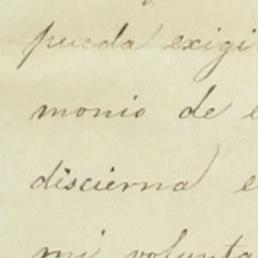 pueda exigi
monio de e
discierna e
mi volunta